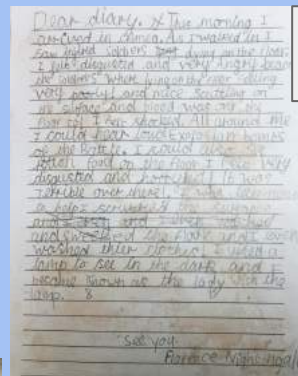 Dear diary, This morning I
arrived in crimea. As I walked in I
saw injred soldiers dying on the floor.
I felt disgusted and very angry
the soldiers where lying on the floor feeling
very poorly and mice scuttling on
the surface and blood was on the
floor too I feel shocked. All around me
I could hear loud
of the Battle. I could also see
rotton food on the floor I feel very
disgusted and horrified! It was
terrible over there! It was
to help I scrubbed
and
and the floor and I even
washed thier clothes. I used a
lamp to see in the dark and I
became known as the lady with the
lamp.
See you
Florence Nightingale